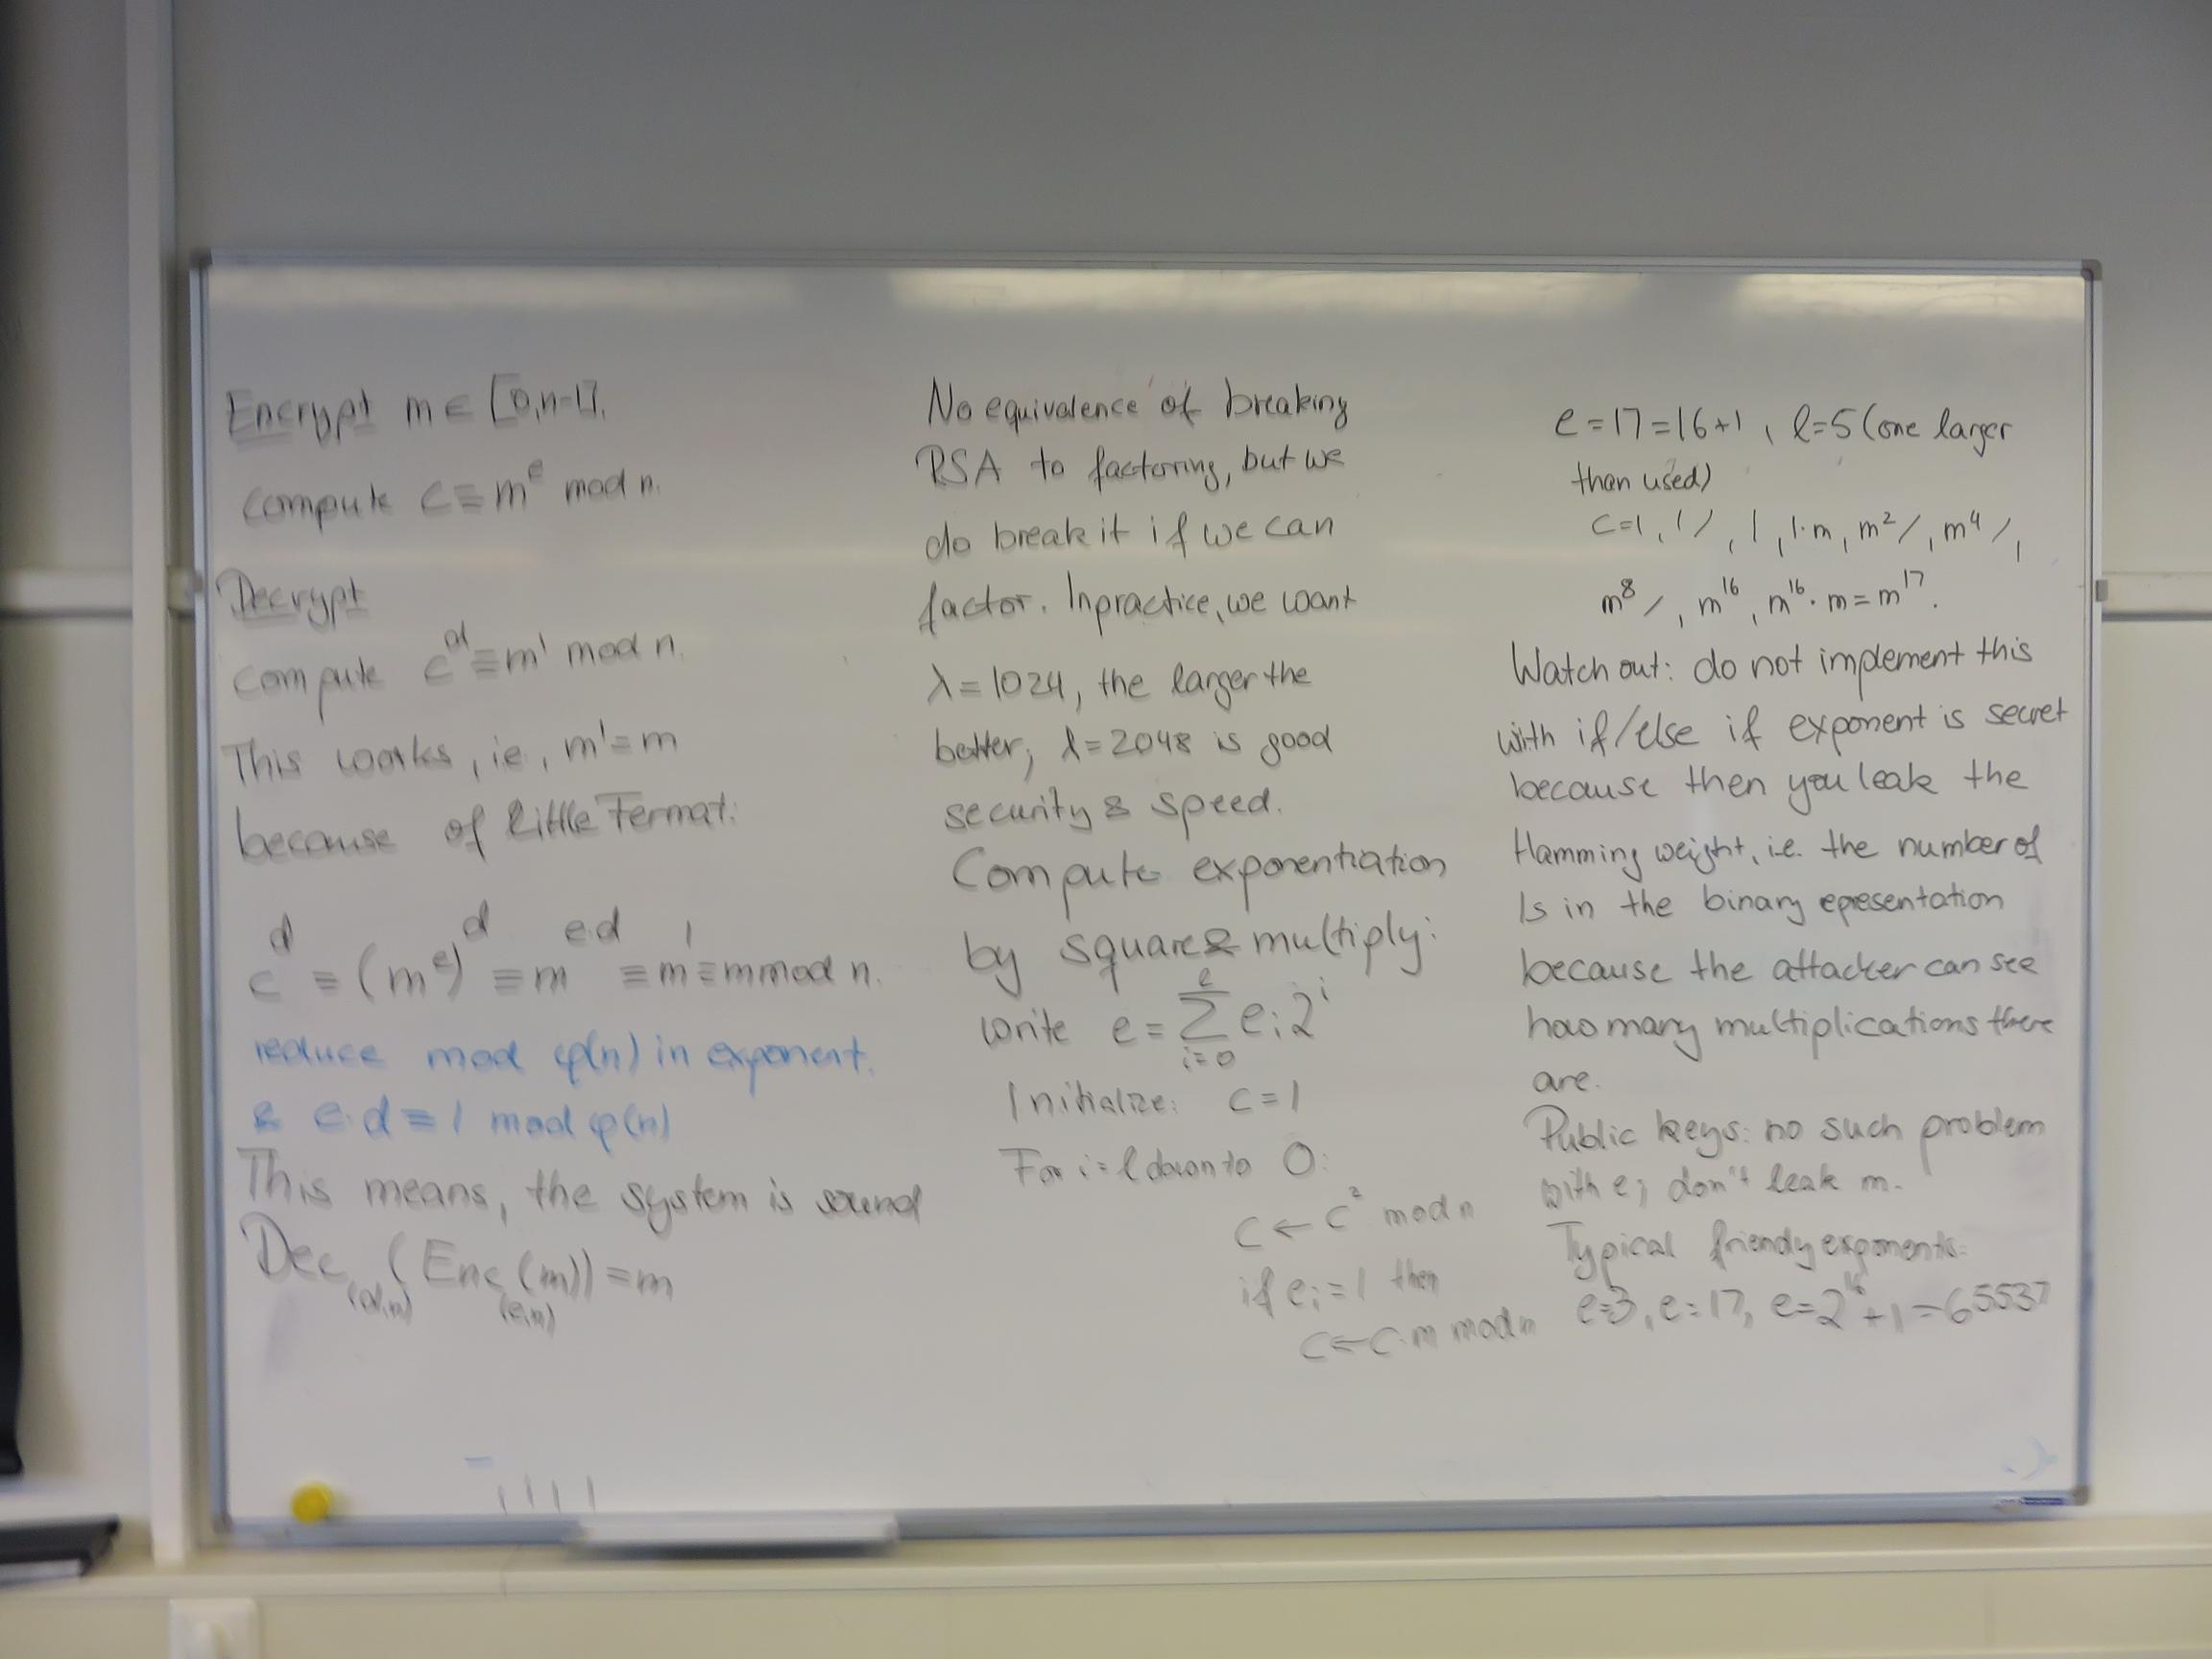 Encrypt m ∈ [0,n-1].
compute c ≡ m^e mod n.
Decrypt
compute c^d ≡ m' mod n.
This works, i.e., m' = m
because of little Fermat:
c^d ≡ (m^e)^d ≡ m^{e·d} ≡ m^1 ≡ m mod n.
reduce mod φ(n) in exponent.
& e·d ≡ 1 mod φ(n)
This means, the system is sound
Dec_{(d,n)} (Enc_{(e,n)}(m)) = m
No equivalence of breaking
RSA to factoring, but we
do break it if we can
factor. In practice, we want
λ = 1024, the larger the
better; λ = 2048 is good
security & speed.
Compute exponentiation
by square & multiply:
write e = ∑_{i=0}^{ℓ} e_i 2^i
Initialize: c = 1
For i = ℓ down to 0:
c ← c^2 mod n
if e_i = 1 then
c ← c·m mod n
e = 17 = 16+1, ℓ=5 (one larger
than used)
c=1, 1 /, 1, 1·m, m^2 /, m^4 /,
m^8 /, m^16, m^16·m = m^17.
Watch out: do not implement this
with if/else if exponent is secret
because then you leak the
Hamming weight, i.e. the number of
1s in the binary epresentation
because the attacker can see
how many multiplications there
are.
Public keys: no such problem
with e; don't leak m.
Typical friendly exponents:
e=3, e=17, e=2^16+1=65537